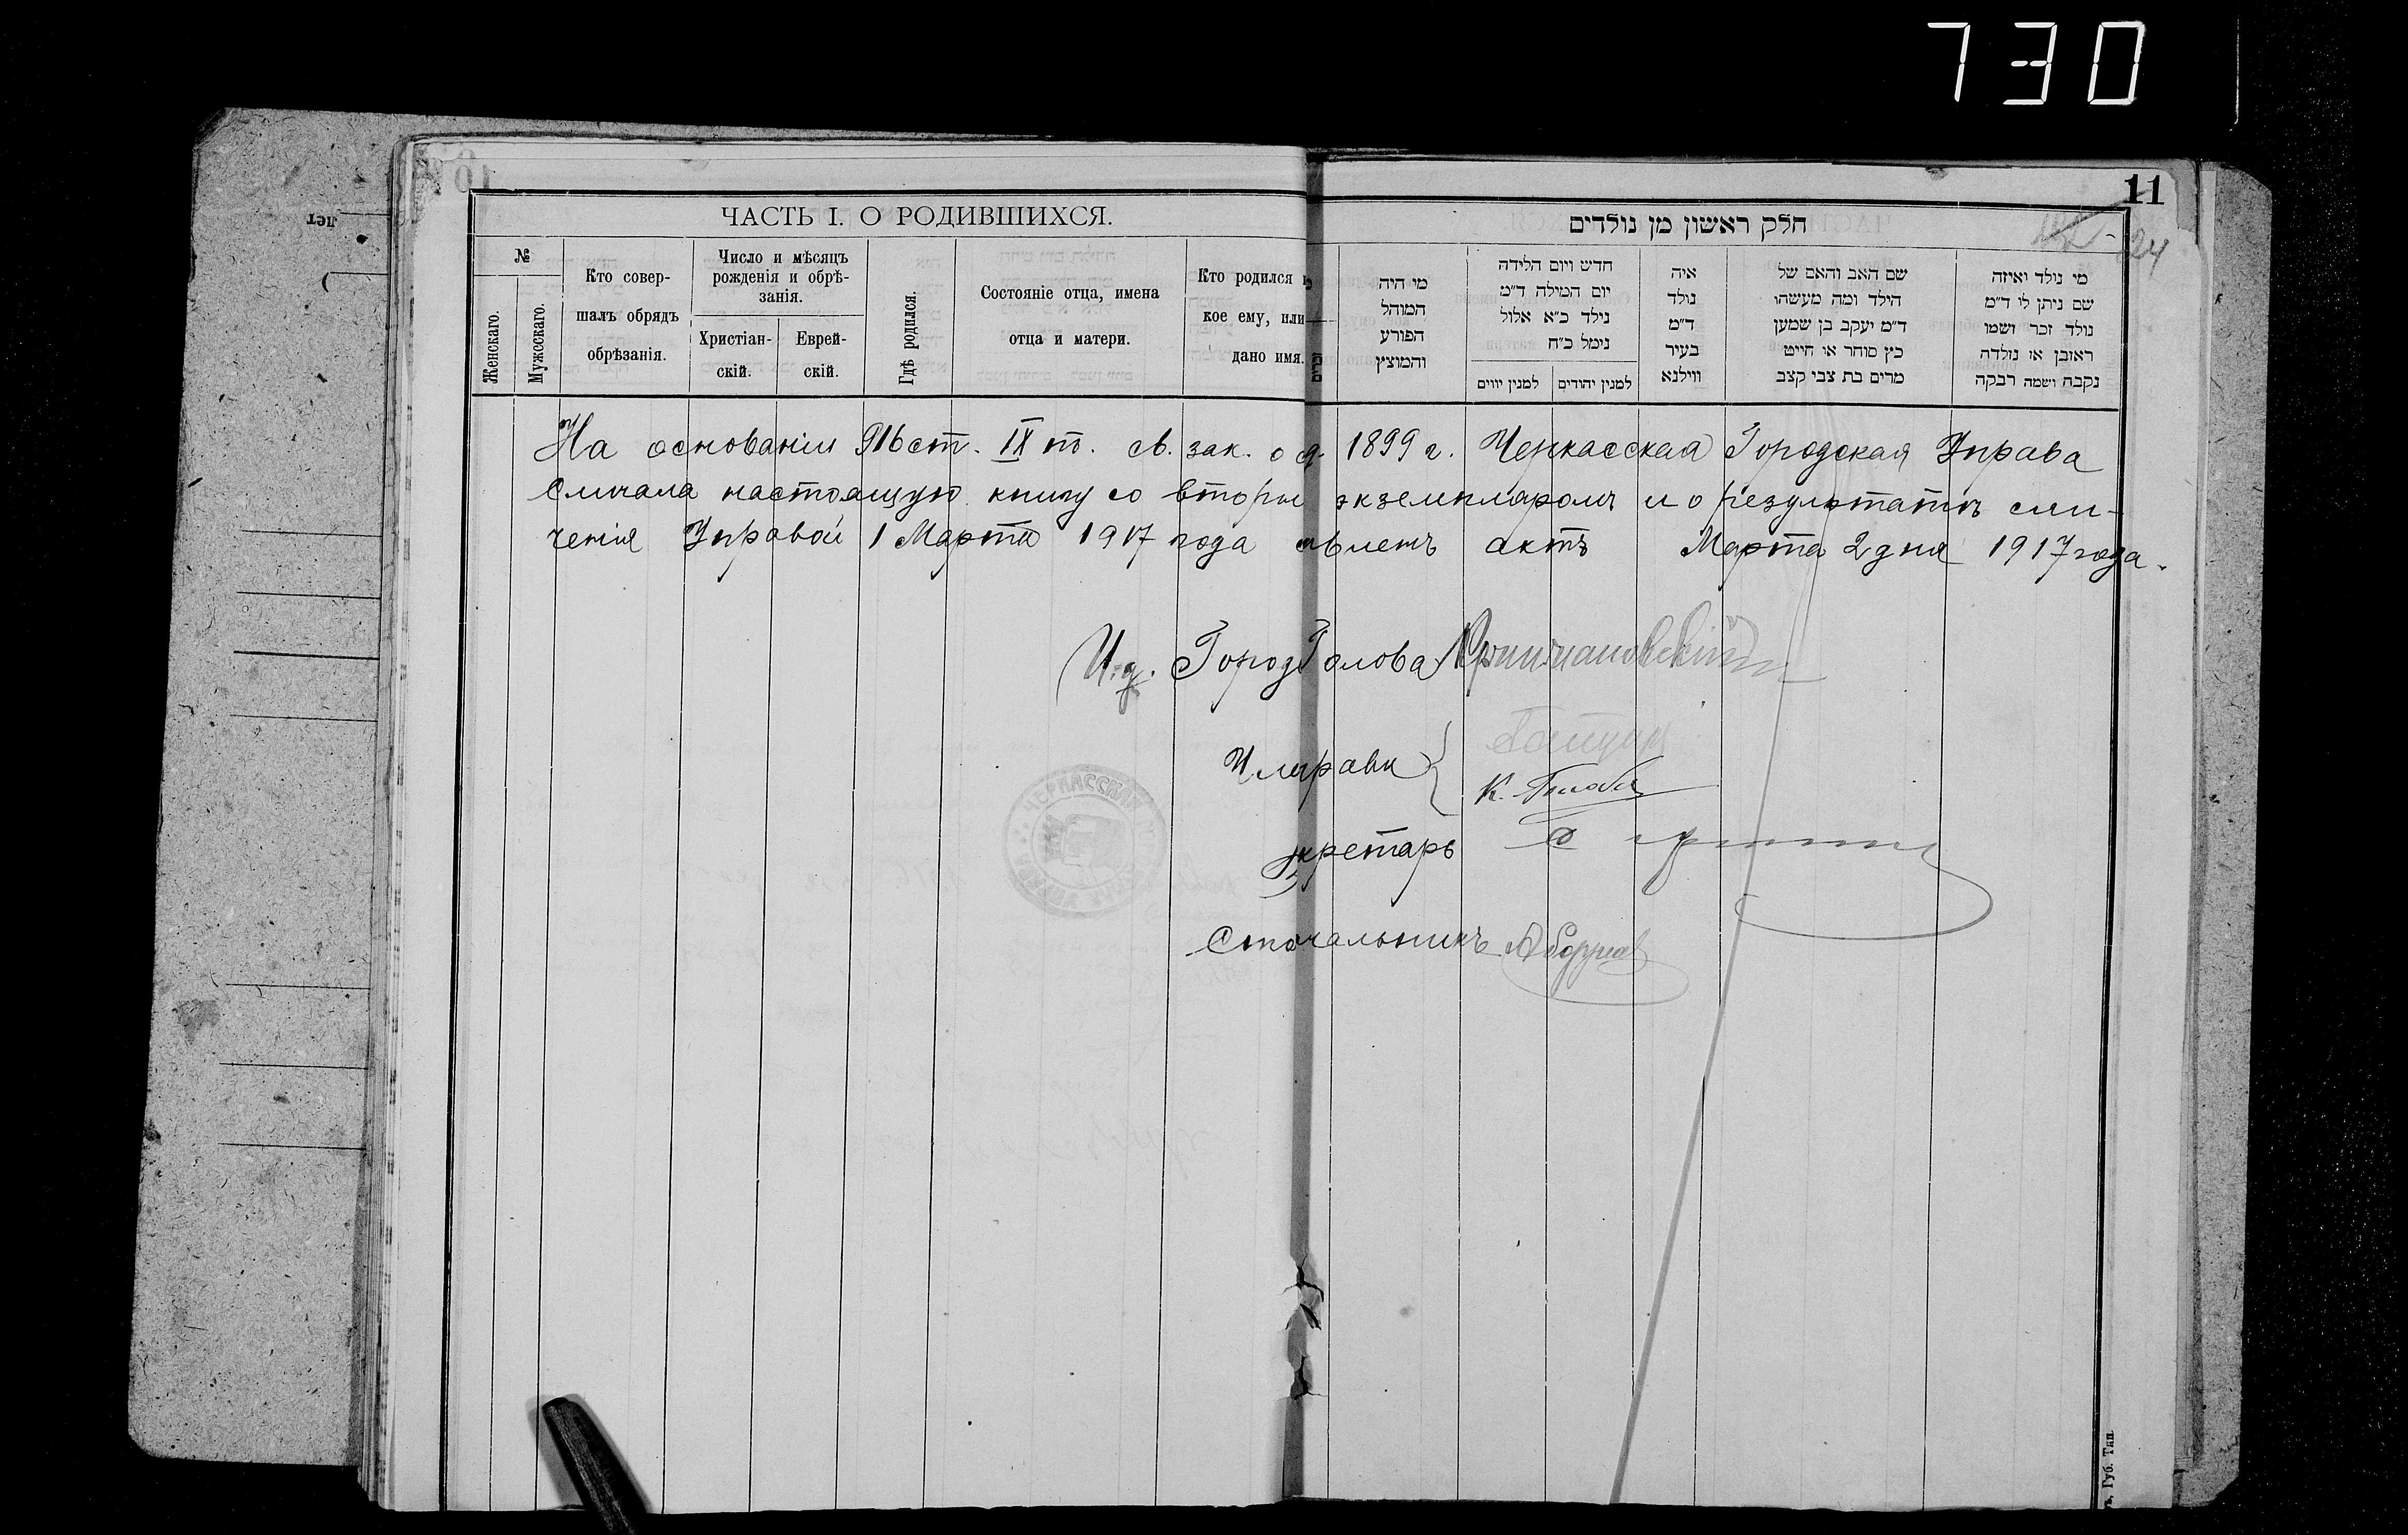 730
11
24
ЧАСТЬ I. О РОДИВШИХСЯ.
חלק ראשון מן נולדים
№
Женскаго.
Мужескаго.
Кто совер-
шалъ обрядъ
обрѣзанія.
Число и мѣсяцъ
рожденія и обрѣ-
занія.
Христіан-
скій.
Еврей-
скій.
Гдѣ родился.
Состояніе отца, имена
отца и матери.
Кто родился и
кое ему, или
дано имя.
מי היה
המוהל
הפורע
והמוצץ
חדש ויום הלידה
יום המילה ד״מ
נילד כ״א אלול
נימל כ״ח
למנין יווים
למנין יהודים
איה
נולד
ד״מ
בעיר
ווילנא
שם האב והאם של
הילד ומה מעשהו
ד״מ יעקב בן שמען
כץ סוחר או חייט
מרים בת צבי קצב
מי נולד ואיזה
שם ניתן לו ד״מ
נולד זכר ושמו
ראובן או נולדה
נקבה ושמה רבקה
На основаніи 916 ст. IX т. св. зак. о с. 1899 г. Черкасская Городская Управа
сличала настоящую книгу со вторы экземпляромъ и о результатѣ сли-
ченія Управой 1 Марта 1917 года авленъ актъ Марта 2 дня 1917 года.
И. д. Город Голова
Ч. управы
кретарь
К.
Столоначальникъ
Губ. Тип.